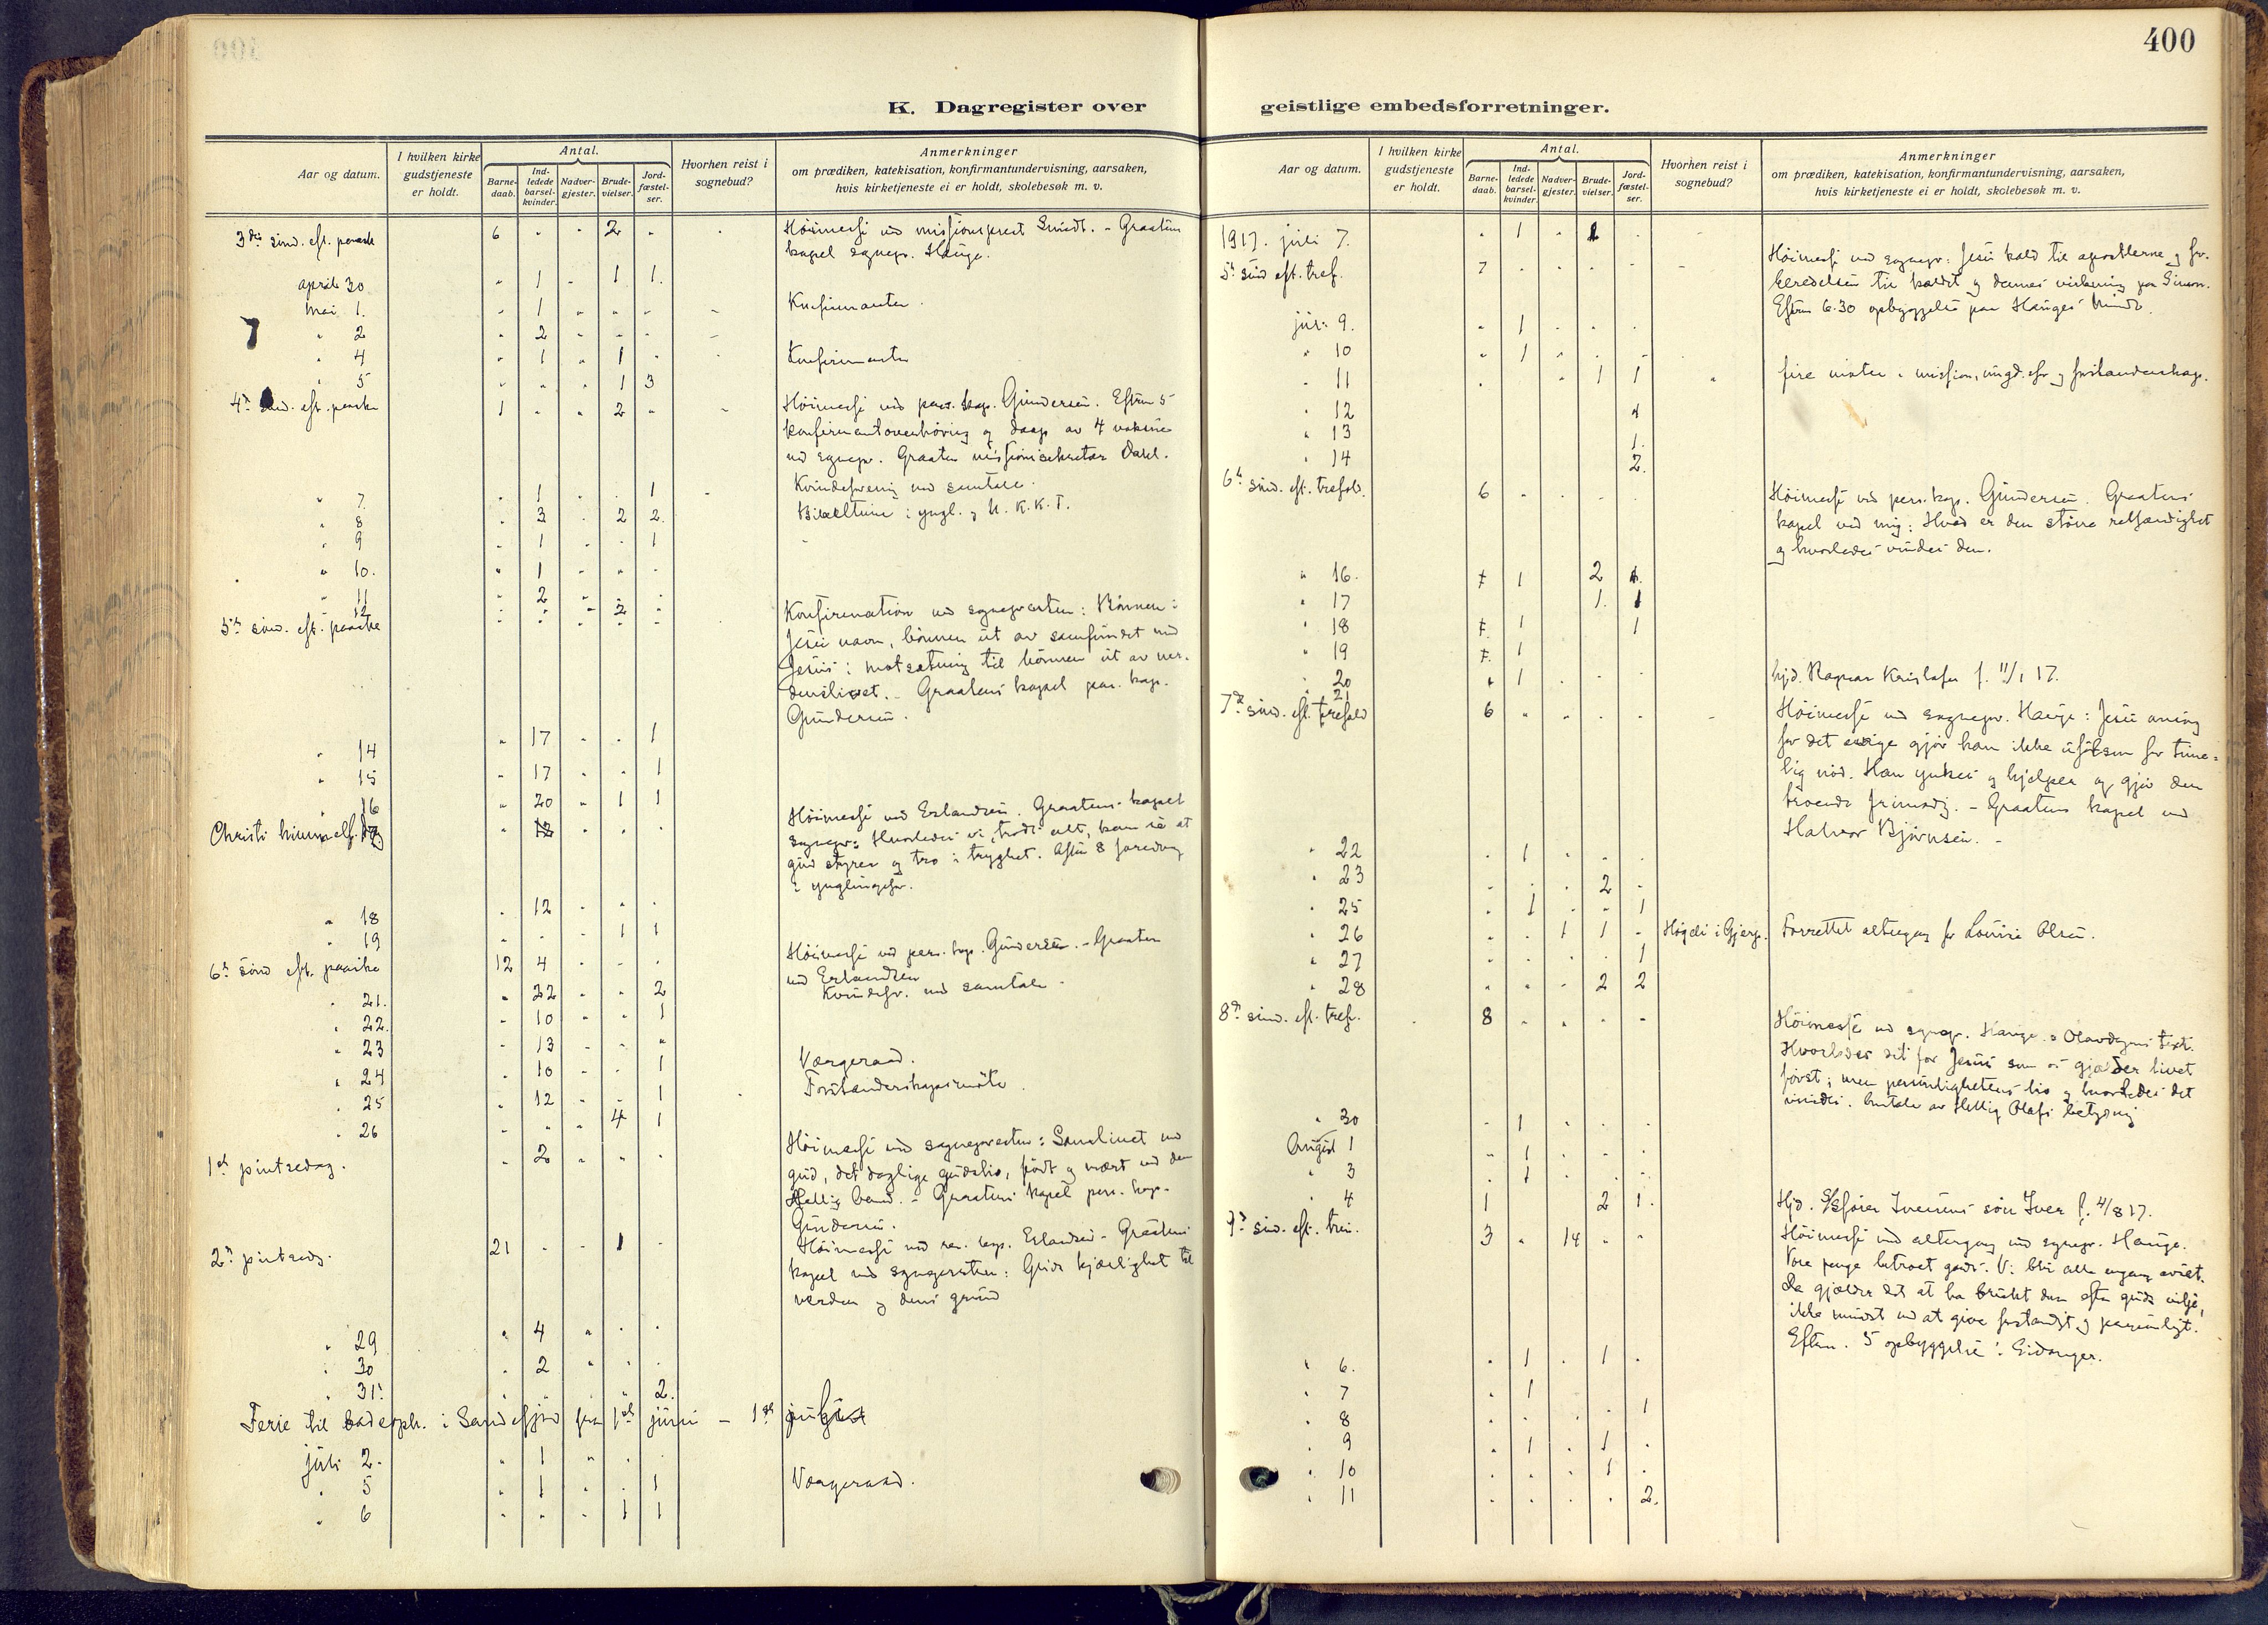 400
K. Dagregister over geistlige embedsforretninger.
Aar og datum.
I hvilken kirke gudstjeneste er holdt.
Antal.
Barne-daab.
Ind-ledede barsel-kvinder.
Nadver-gjester.
Brude-vielser.
Jord-fæstel-ser.
Hvorhen reist i sognebud?
Anmerkninger
om prædiken, katekisation, konfirmantundervisning, aarsaken,
hvis kirketjeneste ei er holdt, skolebesøk m. v.
3die sønd. eft. paaske 6 " " 2 " Höimesse ved missionsprest Smidt. - Graaten
kapel sognepr. Hauge.
april 30 " 1 " 1 1.
Mai 1. " 1 " " " Konfirmanter.
" 2 " 2 " " "
" 4 " 1 " 1 " Konfirmanter
" 5 " " " 1 3
4de sønd. eft. paaske 1 " " 2 " Höimesse ved pers. kap. Gundersen. Efterm 5
konfirmantoverhöring og daap av 4 voksne
ved sognepr. Graaten missionssekretær Dahl.
" 7. " 1 " " 1 Kvindeforening med samtale.
" 8 " 3 " 2 2. Bibeltime i yngl. og U. K. K. F.
" 9 " 1 " " 1
" 10. " 1 " " "
" 11 " 2 " " "
12 " " " 2 "
5te sönd. eft. paaske " " " " " Konfirmation ved sognepresten: Bönnen i
Jesu navn, bönnen ut av samfundet med
Jesus i motsætning til bönnen ut av ver-
denslivet. - Graatens kapel pers. kap.
Gundersen.
" 14 " 17 " " 1
" 15 " 17 " " 1
" 16 " 20 " 1 1
Christi himmelf. dag " 12 " " " Höimesse ved Erlandsen. Graatens kapel
sognepr: Hvorledes vi, trods alt, kan se at
gud styrer og tro i tryghet. Aften 8 foredrag
i ynglingefor.
" 18 " 12 " " "
" 19 " " " 1 1
6te sönd eft. paaske 12 4 " " " Höimesse ved pers. kap. Gundersen. - Graaten
ved Erlandsen
" 21. " 22 " " 2 Kvindefor. med samtale.
" 22. " 10 " " 1
" 23 " 13 " " "
" 24 " 10 " " 1 Værgeraad.
" 25 " 12 " " 1 Forstanderskapsmöte.
" 26 " " " 4 1
1ste pintsedag. " 2 " " " Höimesse ved sognepresten: Samlivet med
gud, det daglige gudsliv, födt og nært ved den
Hellig aand. - Graatens kapel pers. kap.
Gundersen.
2den pintsedag. 21 " " 1 " Höimesse ved res. kap. Erlandsen - Graatens
kapel ved sognepresten: Guds kjærlighet til
verden og dens grund
" 29 " 4 " " "
" 30 " 2 " " "
" 31. " " " " 2.
Ferie til badeoph. i Sandefjord fra 1ste juni - 1ste juli
juli 2. " 1 " " "
" 5 " 1 " " 1 Værgeraad.
" 6 " " " 1 1
Aar og datum.
I hvilken kirke gudstjeneste er holdt.
Antal.
Barne-daab.
Ind-ledede barsel-kvinder.
Nadver-gjester.
Brude-vielser.
Jord-fæstel-ser.
Hvorhen reist i sognebud?
Anmerkninger
om prædiken, katekisation, konfirmantundervisning, aarsaken,
hvis kirketjeneste ei er holdt, skolebesøk m. v.
1917. juli 7. " 1 " 1 "
5te sönd eft. tref. 7 " " " " Höimesse ved sognepr: Jesu kald til apostlerne og for-
beredelsen til kaldet og dennes virkning paa Simon.
Efterm 6.30 opbyggelse paa Hauges Minde.
juli 9. " 1 " " "
" 10 " 1 " " "
" 11 " " 1 1 fire möter i mission, ungd.for og forstanderskap.
" 12 1
" 13 1.
" 14 2.
6te sönd. eft. trefold. 6 " " " " Höimesse ved pers. kap. Gundersen. Graatens
kapel ved mig: Hvad er den större retfærdighet
og hvorledes vindes den.
" 16. 1 2 1.
" 17 1. 1
" 18 1 1
" 19 1
" 20 1 " " " hjd. Ragnar Kristofer f. 11/1 17.
21
7de sönd. eft. trefold 6 " " " " Höimesse ved sognepr. Hauge: Jesu aning
for det evige gjör ham ikke uföls om for time-
lig nöd. Han ynkes og hjelper og gjör den
troende frimodig. - Graatens kapel ved
Halvor Björnsen. -
" 22 " 1 " " "
" 23 " " " 2 "
" 25 " 1 " " 1
" 26 " " 1 1 " Högdi i Gjerp. Forrettet altergang for Lovise Olsen.
" 27 " " " " 1
" 28 " " " 2 2
8de sönd. eft. tref. 8 " " " " Höimesse ved sognepr. Hauge. Olavdagens text.
Hvorledes det for Jesus som os gjælder livet
först; men personlighetens liv og hvorledes det
vindes. Omtale av Hellig Olafs betydning
" 30 " 1 " " "
August 1 " 1 " " "
" 3 " 1 " " "
" 4 1 2 1. Hjd. Iversens sön Iver f. 4/8 17.
9de sönd. eft. tref. 3 " 14 " " Höimesse med altergang ved sognepr. Hauge.
Vore penge betroet gods. Vi blir alle engang avsat.
Da gjælder det at ha brukt dem efter guds vilje,
ikke mindst ved at give forstandigt og personligt.
Efterm. 5 opbyggelse i Eidanger.
" 6. " 1 " 1 "
" 7 " 1
" 8 " " " " 1
" 9 " 1 " 1 "
" 10 " " " 1 "
" 11 " " " " 2.